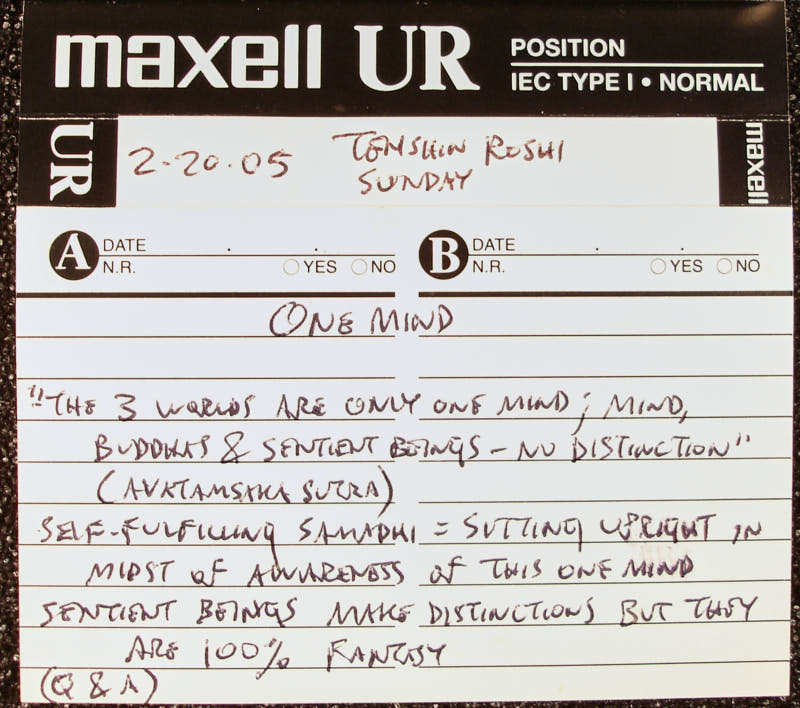 maxell UR POSITION
IEC TYPE I • NORMAL
UR 2-20-05 TENSHIN ROSHI maxell
SUNDAY
A DATE . . B DATE . .
N.R. YES NO N.R. YES NO
ONE MIND
"THE 3 WORLDS ARE ONLY ONE MIND; MIND,
BUDDHAS & SENTIENT BEINGS - NO DISTINCTION"
(AVATAMSAKA SUTRA)
SELF-FULFILLING SAMADHI = SITTING UPRIGHT IN
MIDST OF AWARENESS OF THIS ONE MIND
SENTIENT BEINGS MAKE DISTINCTIONS BUT THEY
ARE 100% FANTASY
(Q & A)